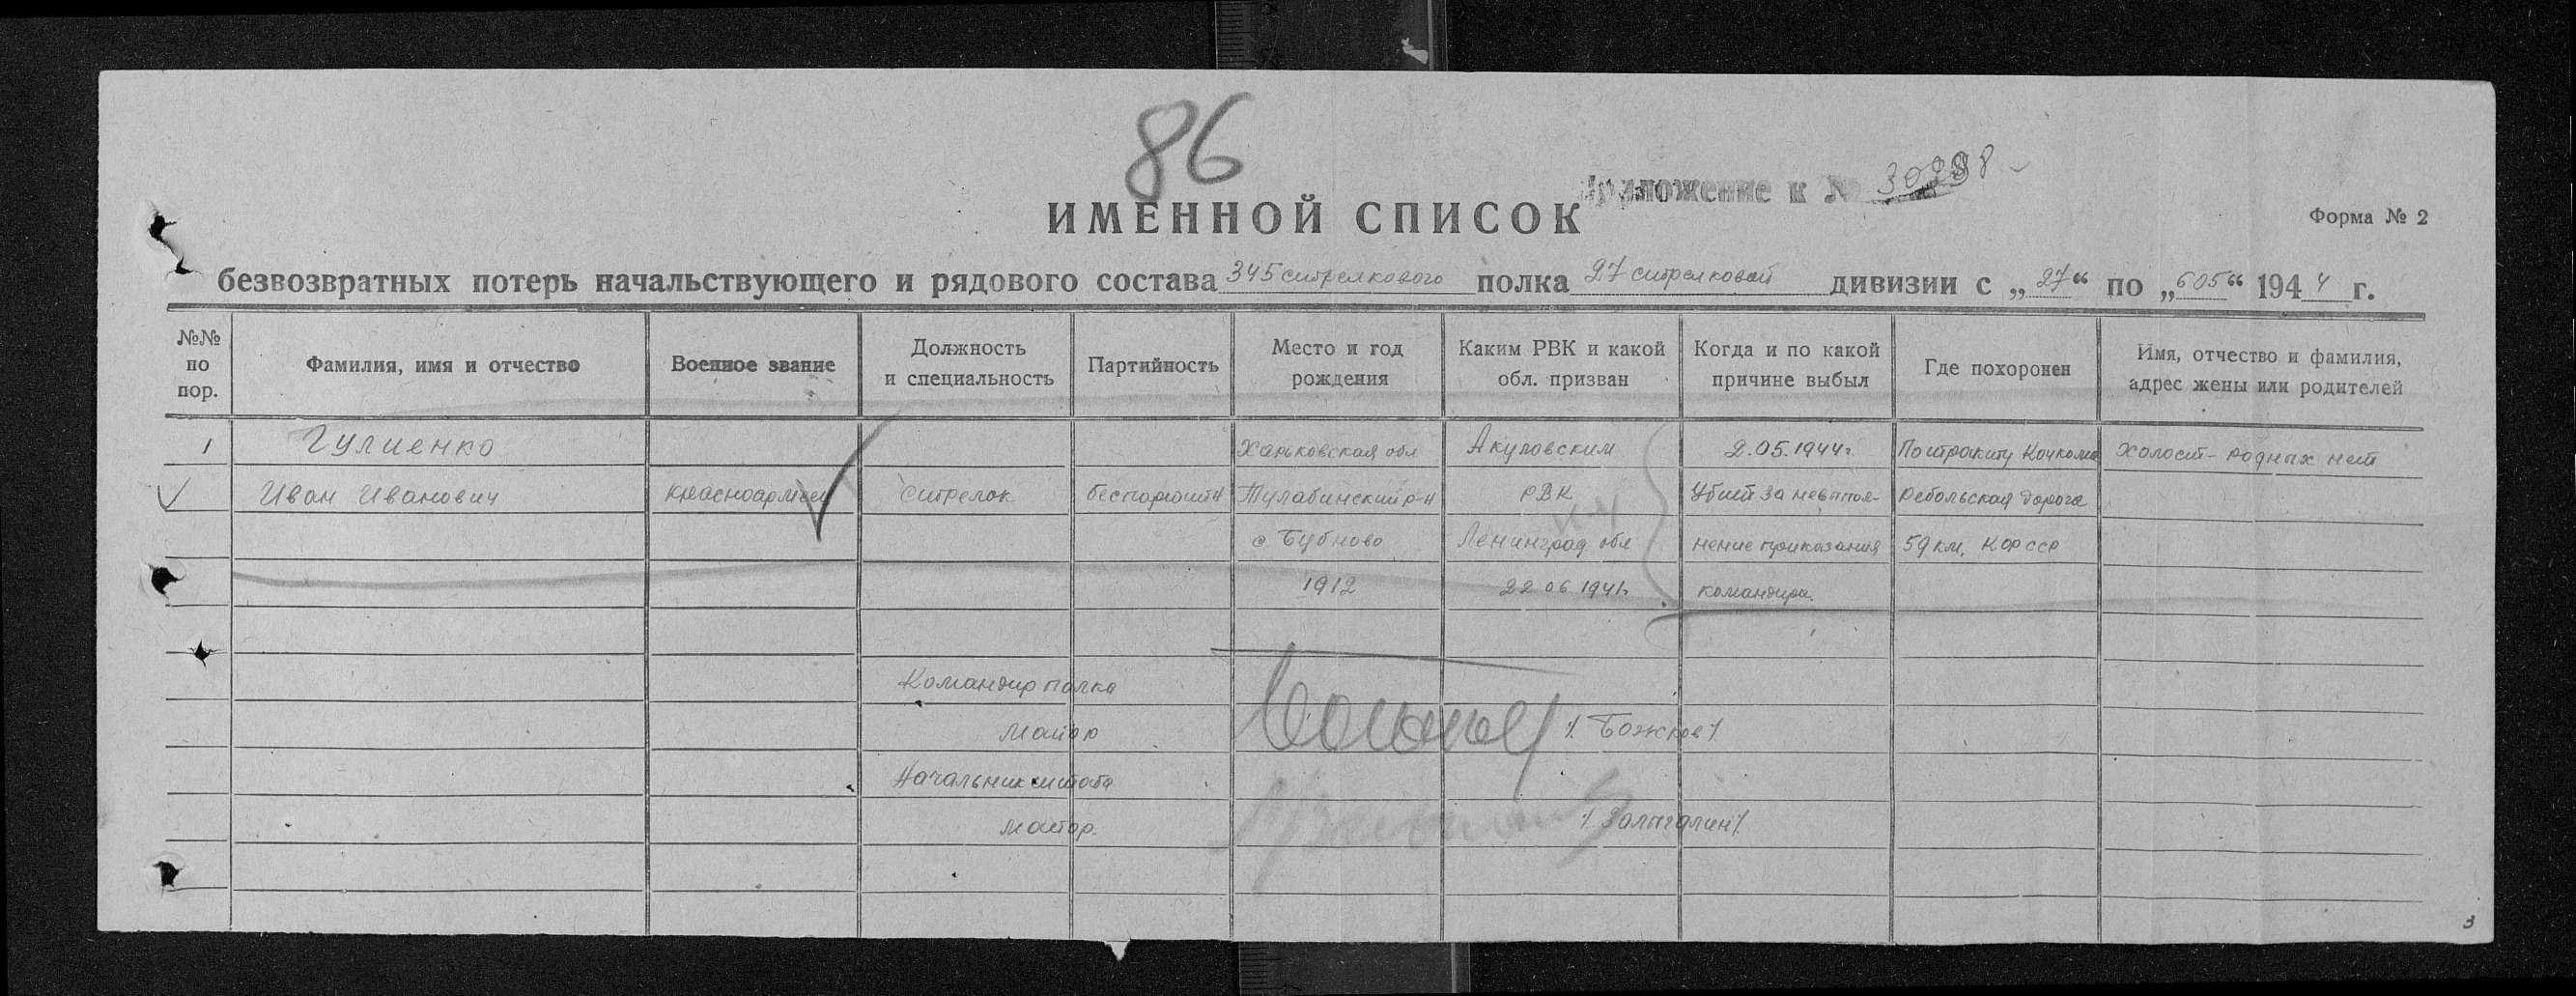 86
Приложение к №
ИМЕННОЙ СПИСОК
Форма № 2
безвозвратных потерь начальствующего и рядового состава 345 стрелкового полка 27 стрелковой дивизии с „27“ по „605“ 1944 г.
№№ по пор.
Фамилия, имя и отчество
Военное звание
Должность и специальность
Партийность
Место и год рождения
Каким РВК и какой обл. призван
Когда и по какой причине выбыл
Где похоронен
Имя, отчество и фамилия, адрес жены или родителей
1 Гулиенко Харьковская обл Акуловским 2.05.1944г По тракту Кочкома Холост - родных нет
Иван Иванович красноармеец стрелок беспартийн Тулабинский р-н РВК Убит за невыпол- Ребольская дорога
с Бубново Ленинград обл нение приказания 59 км, КФССР
1912 22 06 1941г. командира.
Командир полка
майор / Божков /
Начальник штаба
майор. / Залыгалин /
3